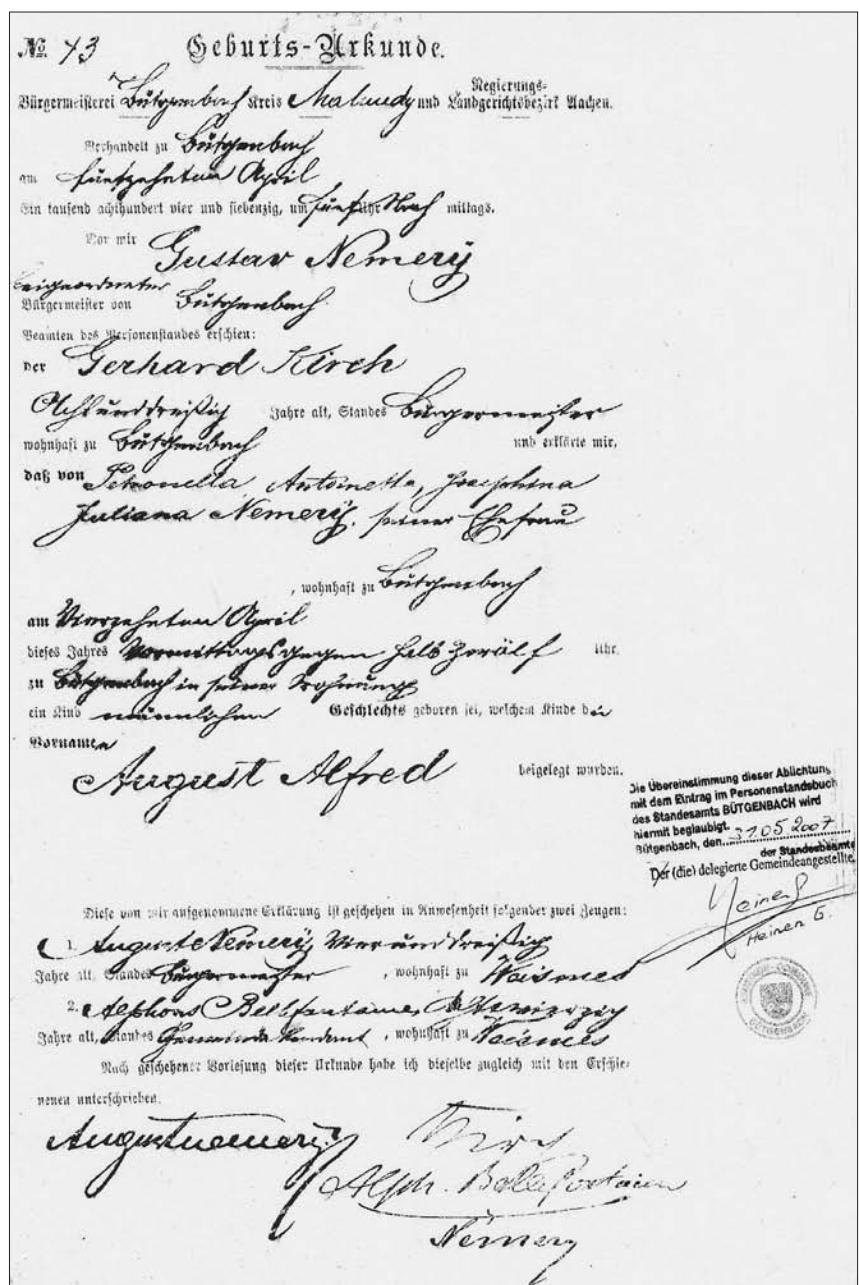 No 43 Geburts-Urkunde.
Bürgermeisterei Bütgenbach Kreis Malmedy und Regierungs- Landgerichtsbezirk Aachen.
Verhandelt zu Bütgenbach
am fünfzehnten April
Ein tausend achthundert vier und siebenzig, um fünf Uhr Nach mittags.
Vor mir Gustav Nemerÿ
Beigeordneter
Bürgermeister von Bütgenbach
Beamten des Personenstandes erschien:
der Gerhard Kirch
Achtunddreißig Jahre alt, Standes Bürgermeister
wohnhaft zu Bütgenbach und erklärte mir,
daß von Petronella Antoinetta, Josephina
Juliana Nemerÿ, seiner Ehefrau
, wohnhaft zu Bütgenbach
am Vierzehnten April
dieses Jahres Vormittags gegen halb zwölf Uhr.
zu Bütgenbach in seiner Wohnung
ein Kind männlichen Geschlechts geboren sei, welchem Kinde die
Vornamen
August Alfred beigelegt wurden.
Die Übereinstimmung dieser Ablichtung
mit dem Eintrag im Personenstandsbuch
des Standesamts BÜTGENBACH wird
hiermit beglaubigt.
Bütgenbach, den 31.05.2007
der Standesbeamte
Der (die) delegierte Gemeindeangestellte,
Heinen G.
BÜTGENBACH
Diese von mir aufgenommene Erklärung ist geschehen in Anwesenheit folgender zwei Zeugen:
1. August Nemerÿ, Vierunddreißig
Jahre alt, Standes Bürgermeister, wohnhaft zu Waismes
2. Alphons
Jahre alt, Standes wohnhaft zu Waismes
Nach geschehener Vorlesung dieser Urkunde habe ich dieselbe zugleich mit den Erschie-
nenen unterschrieben.
August Nemerÿ Kirch
Alph.
Nemery